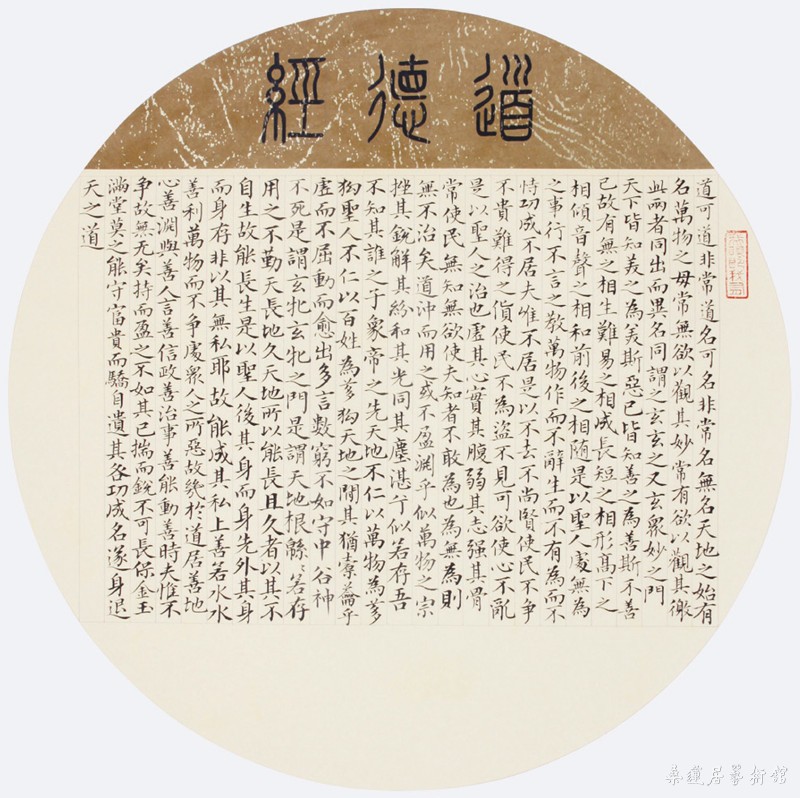 道德經
道可道非常道名可名非常名無名天地之始有
名萬物之母常無欲以觀其妙常有欲以觀其徼
此兩者同出而異名同謂之玄玄之又玄眾妙之門
天下皆知美之為美斯惡已皆知善之為善斯不善
已故有無之相生難易之相成長短之相形高下之
相傾音聲之相和前後之相随是以聖人處無為
之事行不言之教萬物作而不辭生而不有為而不
恃功成不居夫唯不居是以不去不尚賢使民不争
不貴難得之貨使民不為盜不見可欲使心不亂
是以聖人之治也虛其心實其腹弱其志强其骨
常使民無知無欲使夫知者不敢為也為無為則
無不治矣道沖而用之或不盈淵乎似萬物之宗
挫其銳解其紛和其光同其塵湛兮似若存吾
不知其誰之子象帝之先天地不仁以萬物為芻
狗聖人不仁以百姓為芻狗天地之間其猶橐籥乎
虛而不屈動而愈出多言數窮不如守中谷神
不死是謂玄牝玄牝之門是謂天地根緜〻若存
用之不勤天長地久天地所以能長且久者以其不
自生故能長生是以聖人後其身而身先外其身
而身存非以其無私耶故能成其私上善若水水
善利萬物而不争處眾人之所惡故幾於道居善地
心善淵與善人言善信政善治事善能動善時夫惟不
争故無尤矣持而盈之不如其已揣而銳不可長保金玉
滿堂莫之能守富貴而驕自遺其咎功成名遂身退
天之道
桑蓮居藝術館